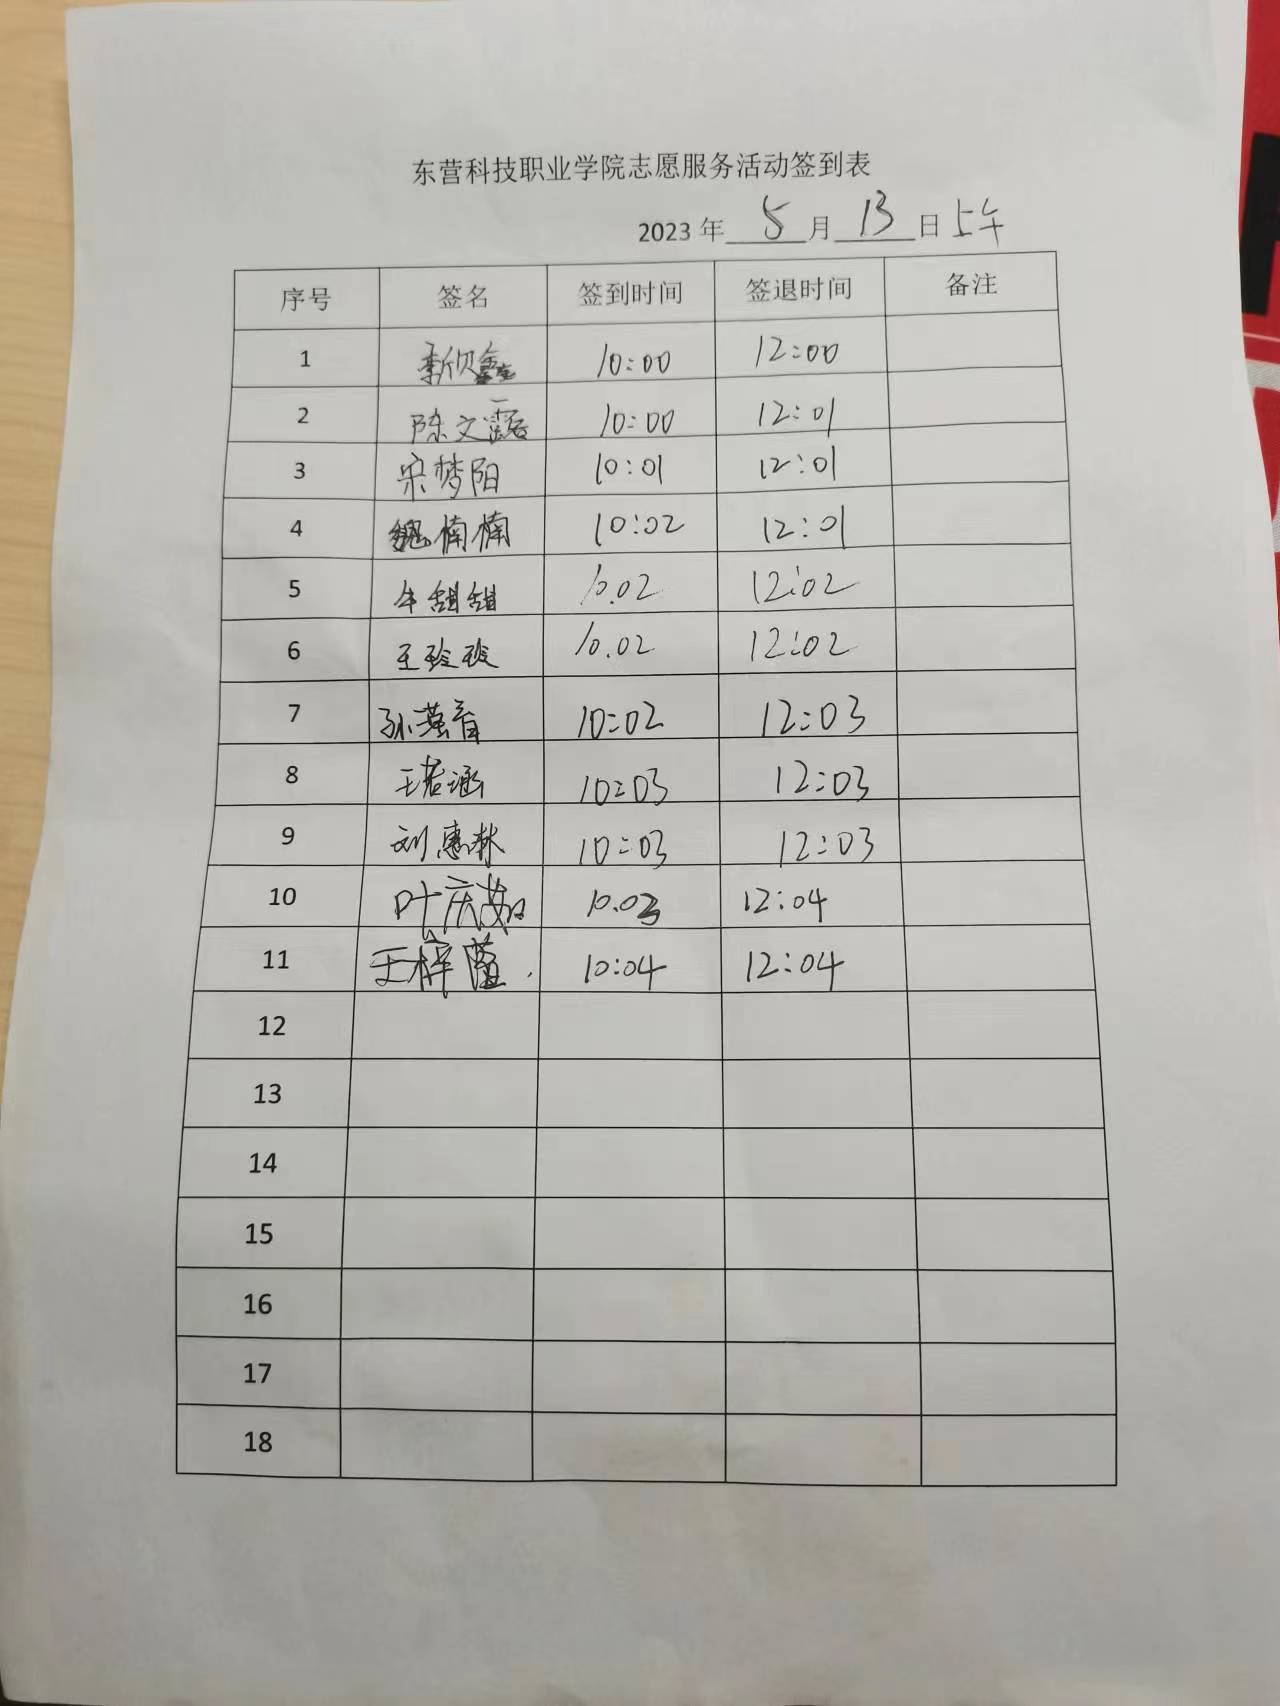 东营科技职业学院志愿服务活动签到表
2023 年 5 月 13 日 上午
序号 签名 签到时间 签退时间 备注
1 靳欣鑫 10:00 12:00
2 陈文露 10:00 12:01
3 宋梦阳 10:01 12:01
4 魏楠楠 10:02 12:01
5 牛甜甜 10.02 12:02
6 王玲玲 10.02 12:02
7 10:02 12:03
8 王若涵 10:03 12:03
9 刘惠林 10:03 12:03
10 叶庆茹 10.03 12:04
11 王梓 10:04 12:04
12
13
14
15
16
17
18